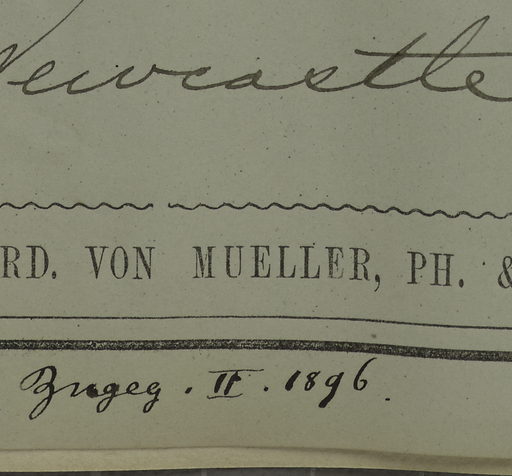 Newcastle
RD. VON MUELLER, PH. &
Zugeg. II. 1896.